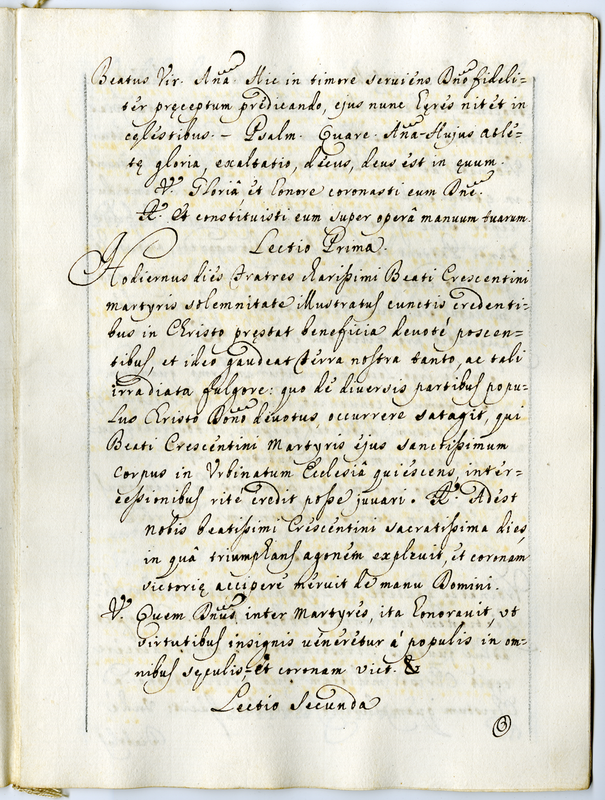 Beatus Vir. Añã. Hic in timore serviens Dnõ fideli=
tèr pręceptum prędicando, ejus nunc hęres nitèt in
cęlèstibus. - Psalm. Quare. Añã. Hujus atlè=
tę gloria, exaltatio, dècus, deus èst in ęuum.
V. Gloriâ èt honore coronasti eum Dñe.
R. Et constituisti eum super operâ manuum tuarum.
Lectio Prima.
Hodiernus diès Fratres charissimi Beati Crescentini
martyris solemnitate illustratus cunctis credenti=
bus in Christo pręstat beneficia devotè poscen=
tibus, et ideo gaudeat tèrra nostra tanto, ac tali
irradiata fulgore: quo dè diversis partibus popu=
lus Christo Dnõ devotus, occurrere satagit, qui
Beati Crescentini Martyris èjus sanctissimum
corpus in Urbinatum Ecclesiâ quièscens, intèr=
cessionibus ritè credit posse juvari. R. Adest
nobis beatissimi Crescentini sacratissima dies,
in quâ triumphans agonèm explevit, èt coronam
victorię accipere mèruit dè manu Domini.
V. Quem Dnũs inter Martyrès, ita honoravit, ut
virtutibus insignis vènerètur à populis in om=
nibus sęculis, èt coronam vict. &
Lectio Secunda
3